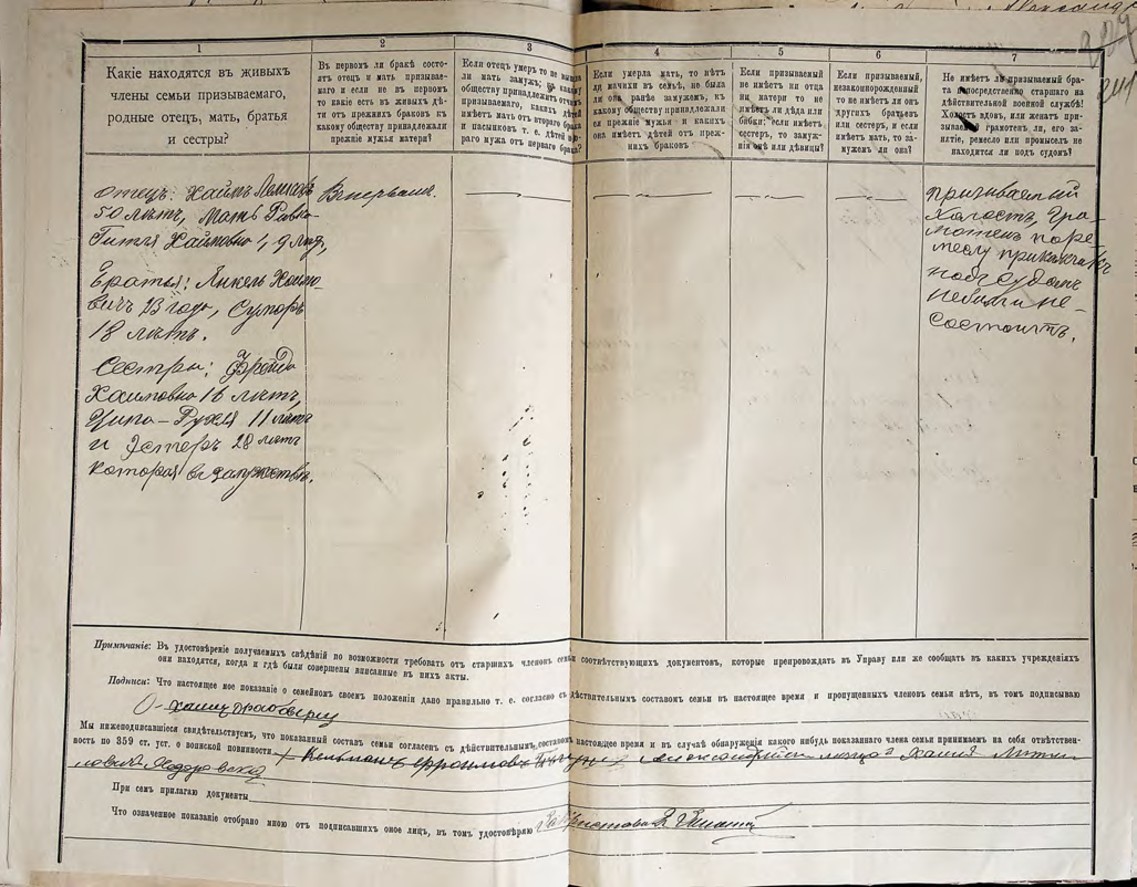 1
Какіе находятся въ живыхъ
члены семьи призываемаго,
родные отецъ, мать, братья
и сестры?
2
Въ первомъ ли бракѣ состо-
ятъ отецъ и мать призывае-
маго и если не въ первомъ
то какіе есть въ живыхъ дѣ-
ти отъ прежнихъ браковъ къ
какому обществу принадлежали
прежніе мужья матери?
3
Если отецъ умеръ то не вышла
ли мать замужъ; къ какому
обществу принадлежитъ отчимъ
призываемаго, какихъ дѣтей
имѣетъ мать отъ втораго брака
и пасынковъ т. е. дѣтей вто-
раго мужа отъ перваго брака?
4
Если умерла мать, то нѣтъ
ли мачихи въ семьѣ, не была
ли она ранѣе замужемъ, къ
какому обществу принадлежали
ея прежніе мужья и какихъ
она имѣетъ дѣтей отъ преж-
нихъ браковъ
5
Если призываемый
не имѣетъ ни отца
ни матери то не
имѣетъ ли дѣда или
бабки; если имѣетъ
сестеръ, то замуж-
нія онѣ или дѣвицы?
6
Если призываемый,
незаконнорожденный
то не имѣетъ ли онъ
другихъ братьевъ
или сестеръ, и если
имѣетъ мать, то за-
мужемъ ли она?
7
Не имѣетъ ли призываемый бра-
та непосредственно старшаго на
дѣйствительной военной службѣ!
Холостъ вдовъ, или женатъ при-
зываемый грамотенъ ли, его за-
нятіе, ремесло или промыселъ не
находится ли подъ судомъ?
отецъ: Хаимъ
50 лѣтъ, Мать Ривка-
Гитля Хаимовна
Братья: Янкель Хаимо-
вичъ 23 года,
18 лѣтъ.
Сестры: Фрейда
Хаимовна 16 лѣтъ,
Ципа-Рухля 11 лѣтъ
и Эстеръ 28 лѣтъ
которая въ замужествѣ.
Впервыя.
призываемый
холостъ, гра-
мотенъ по ре-
меслу прикащикъ
подъ судомъ
небылъ и не
состоитъ.
Примѣчаніе: Въ удостовѣреніе получаемыхъ свѣдѣній по возможности требовать отъ старшихъ членовъ семьи соотвѣтствующихъ документовъ, которые препровождать въ Управу или же сообщать въ какихъ учрежденіяхъ
они находятся, когда и гдѣ были совершены вписанные въ нихъ акты.
Подписи: Что настоящее мое показаніе о семейномъ своемъ положеніи дано правильно т. е. согласно съ дѣйствительнымъ составомъ семьи въ настоящее время и пропущенныхъ членовъ семьи нѣтъ, въ томъ подписываю
Мы нижеподписавшіеся свидѣтельствуемъ, что показанный составъ семьи согласенъ съ дѣйствительнымъ составомъ настоящее время и въ случаѣ обнаруженія какого нибудь показаннаго члена семьи принимаемъ на себя отвѣтствен-
ность по 359 ст. уст. о воинской повинности
При семъ прилагаю документы
Что означенное показаніе отобрано мною отъ подписавшихъ оное лицъ, въ томъ удостовѣряю